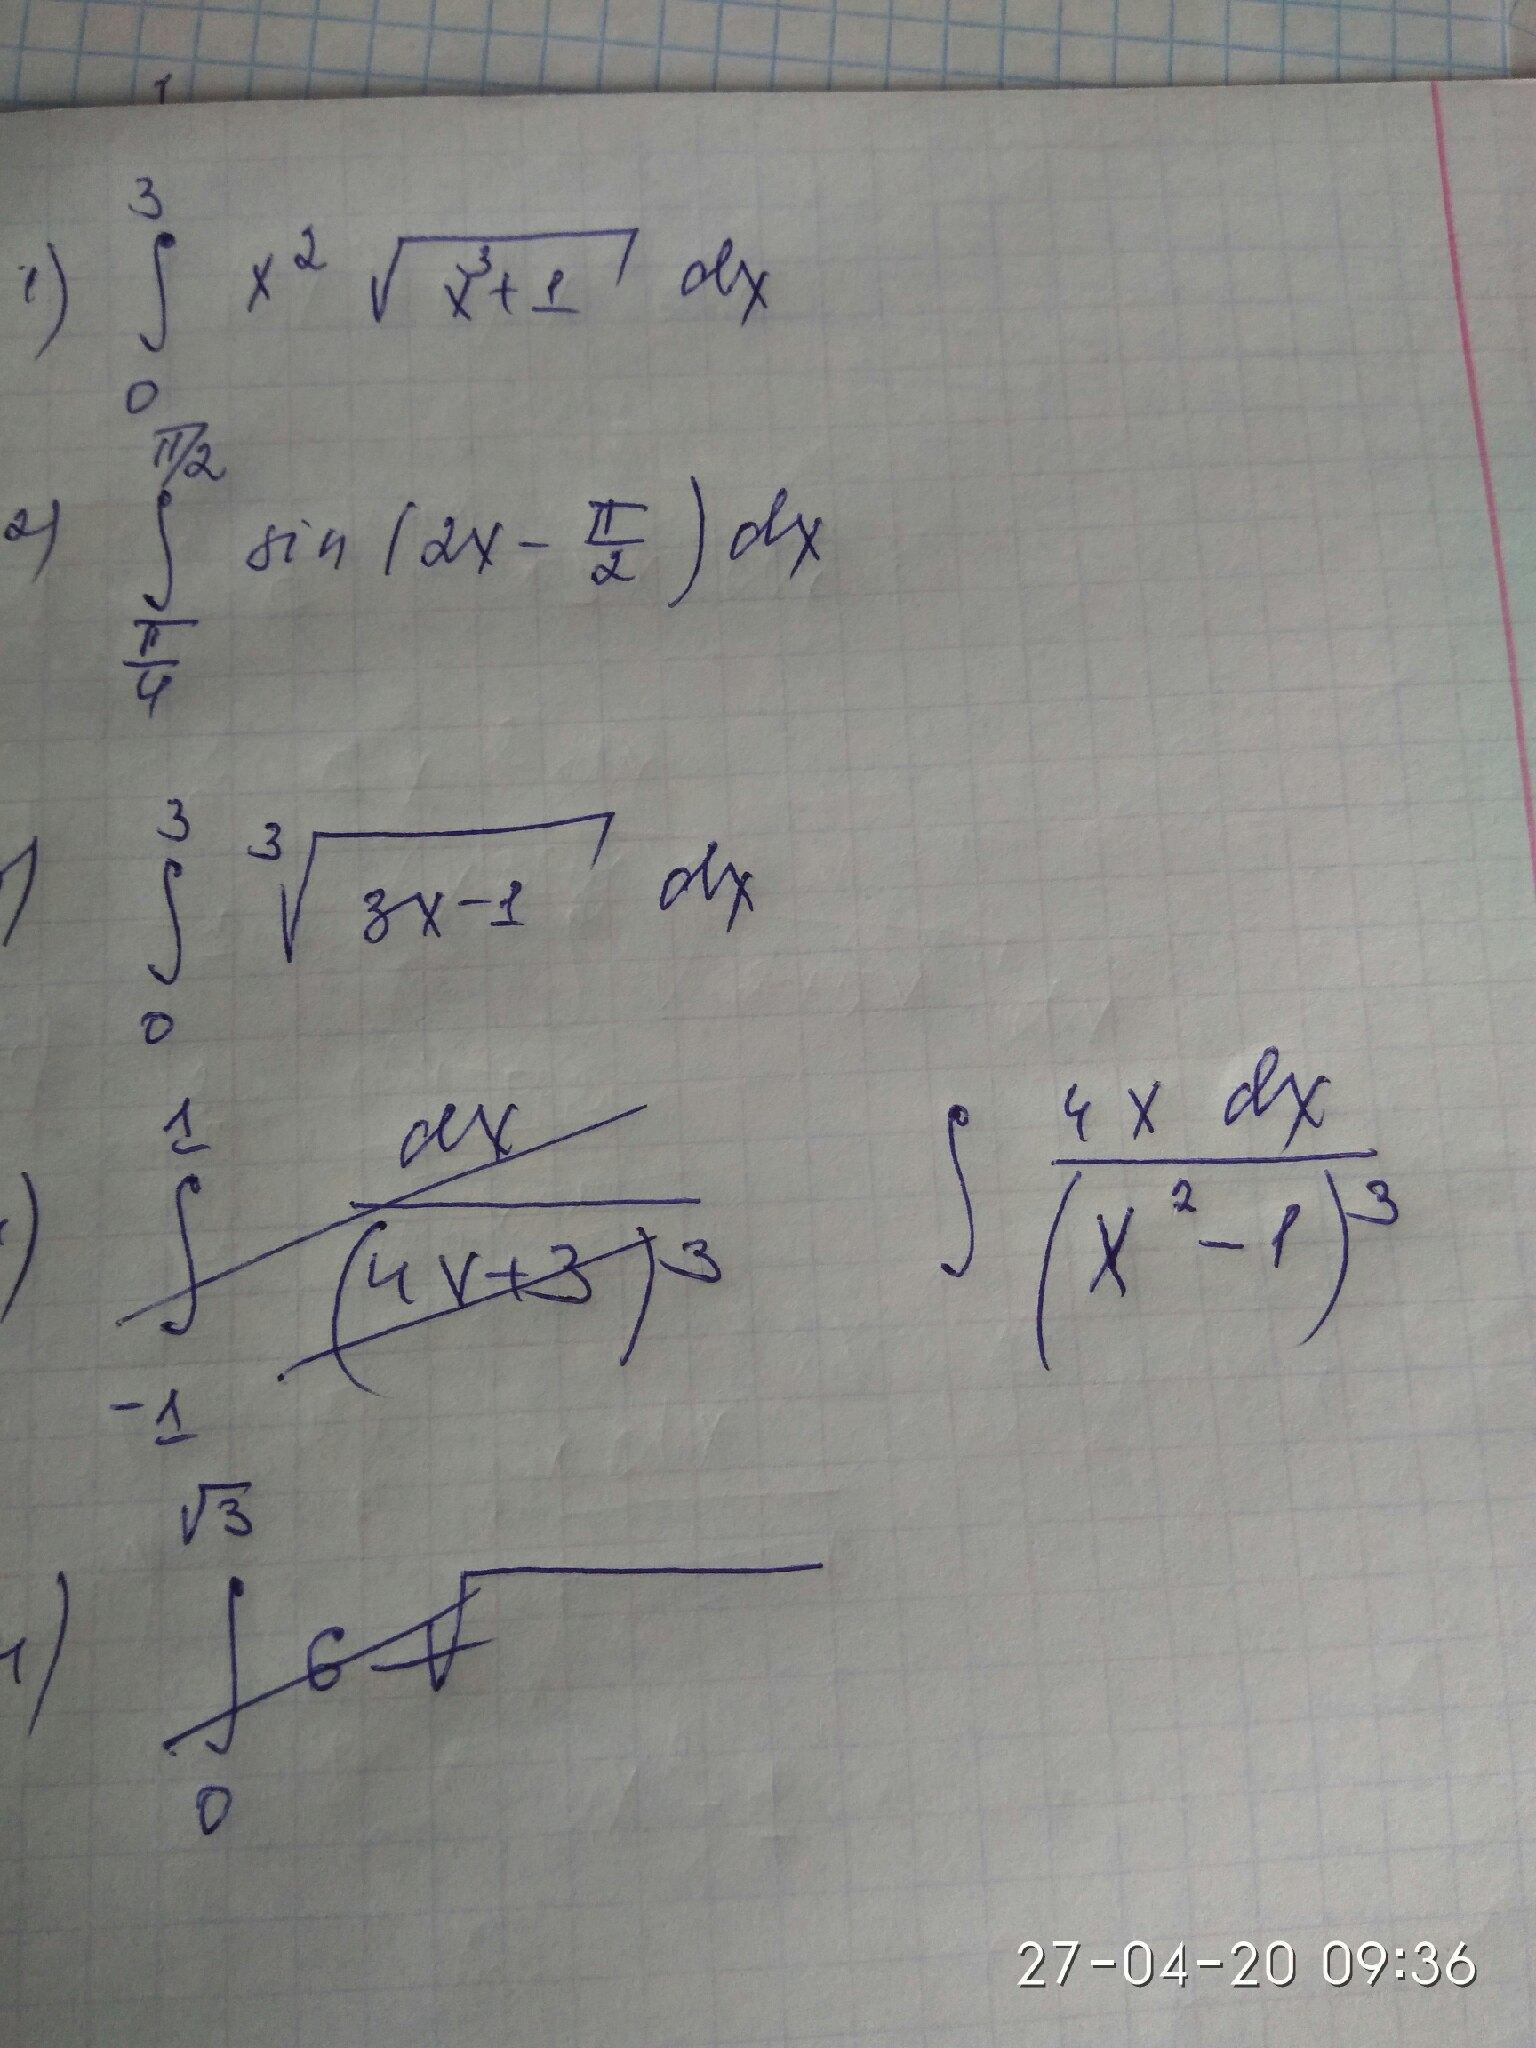 1) ∫₀³ x² √(x³+1) dx
2) ∫_{π/4}^{π/2} sin(2x - π/2) dx
) ∫₀³ ³√(3x-1) dx
) ∫₋₁¹ dx/(4x+3)³ ∫ 4x dx/(x²-1)³
) ∫₀^{√3} 6 - √
27-04-20 09:36